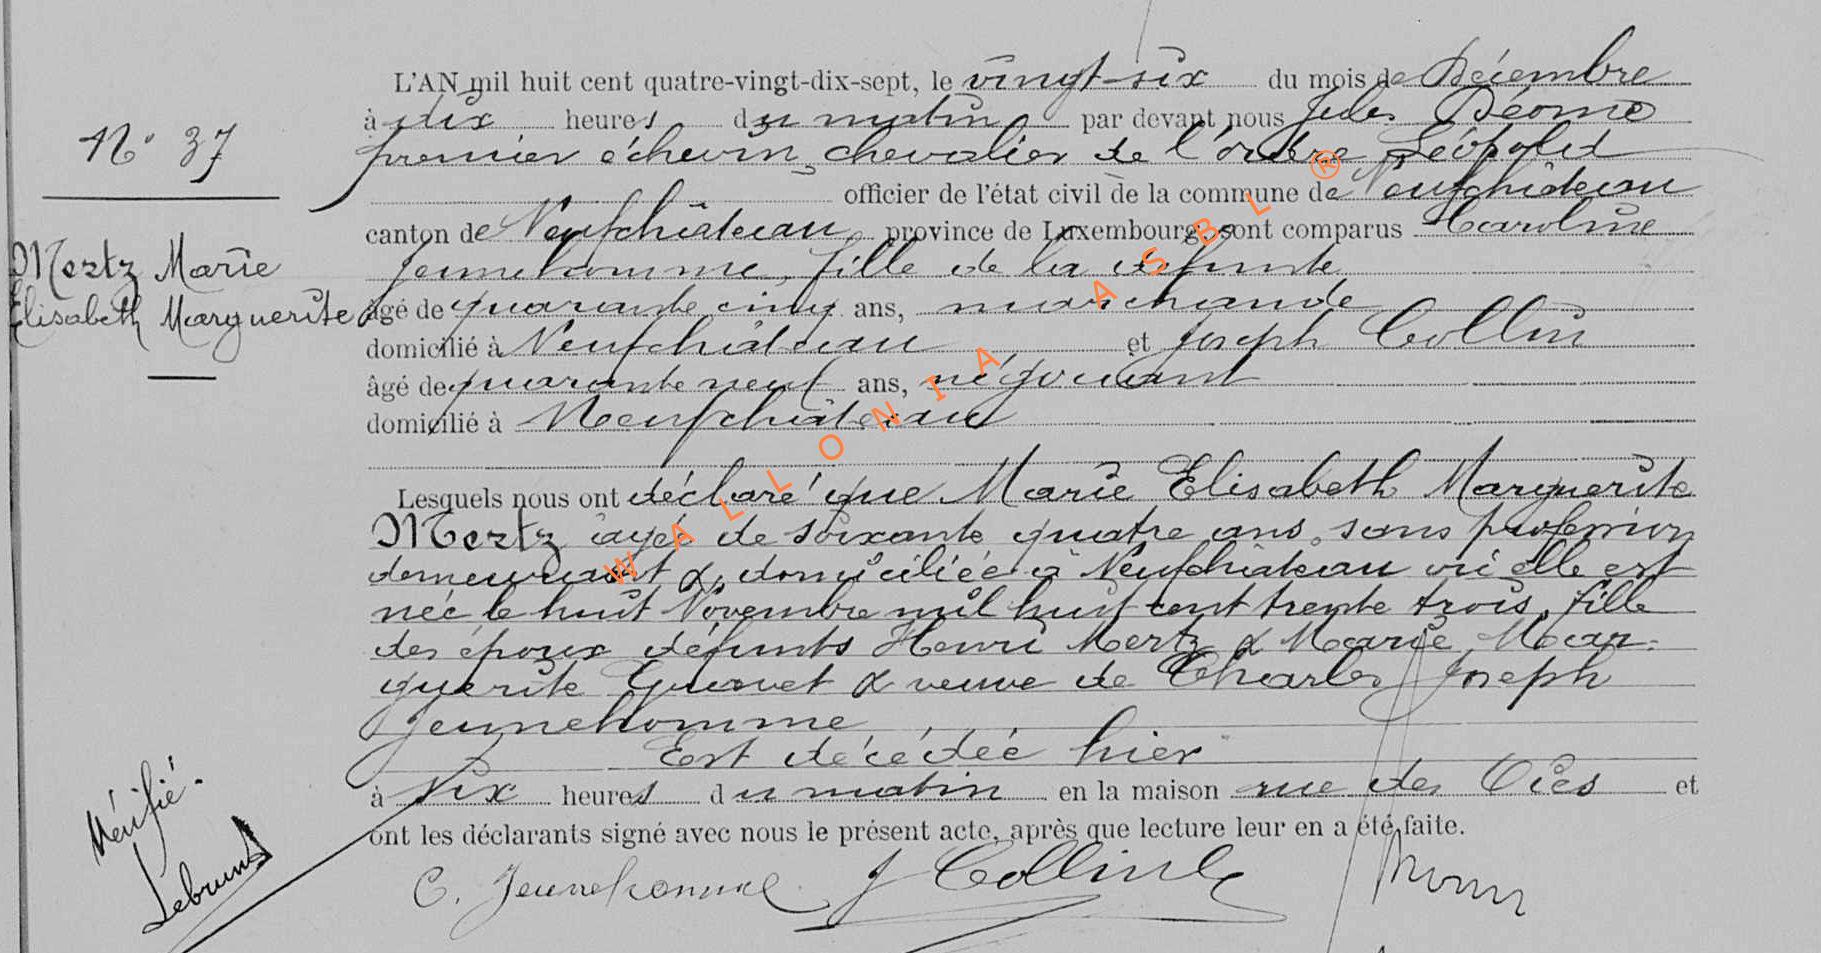 N° 37
Mertz Marie
Elisabeth Marguerite
L'AN mil huit cent quatre-vingt-dix-sept, le vingt-six du mois de Décembre
à dix heures du matin par devant nous Jules
premier échevin, chevalier de l'ordre Léopold
officier de l'état civil de la commune de Neufchâteau
canton de Neufchâteau province de Luxembourg, sont comparus Caroline
Jeunehomme, fille de la défunte
âgé de quarante cinq ans, marchande
domicilié à Neufchâteau et Joseph Collin
âgé de quarante neuf ans, négociant
domicilié à Neufchâteau
Lesquels nous ont déclaré que Marie Elisabeth Marguerite
Mertz âgée de soixante quatre ans, sans profession
demeurant & domiciliée à Neufchâteau où elle est
née le huit Novembre mil huit cent trente trois, fille
des époux défunts Henri Mertz & Marie Mar-
guerite & veuve de Charles Joseph
Jeunehomme
Est décédée hier
à six heures du matin en la maison rue des Oies et
ont les déclarants signé avec nous le présent acte, après que lecture leur en a été faite.
Vérifié.
Lebrun
C. Jeunehomme J Collin
WALLONIA ASBL ®